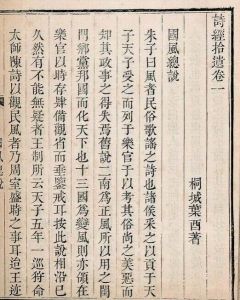 詩經拾遺卷一
桐城葉酉著
國風總說
朱子曰風者民俗歌謠之詩也諸侯采之以貢于天
子天子受之而列于樂官于以考其俗尚之美惡而
知其政事之得失焉舊說二南為正風所以用之閨
門鄉黨邦國而化天下也十三國為變風則亦領在
樂官以時存肄備觀省而垂鑒戒耳按此說相沿已
久然有不能無疑者王制所云天子五年一巡狩命
太師陳詩以觀民風者乃周室盛時之事耳迨王迹